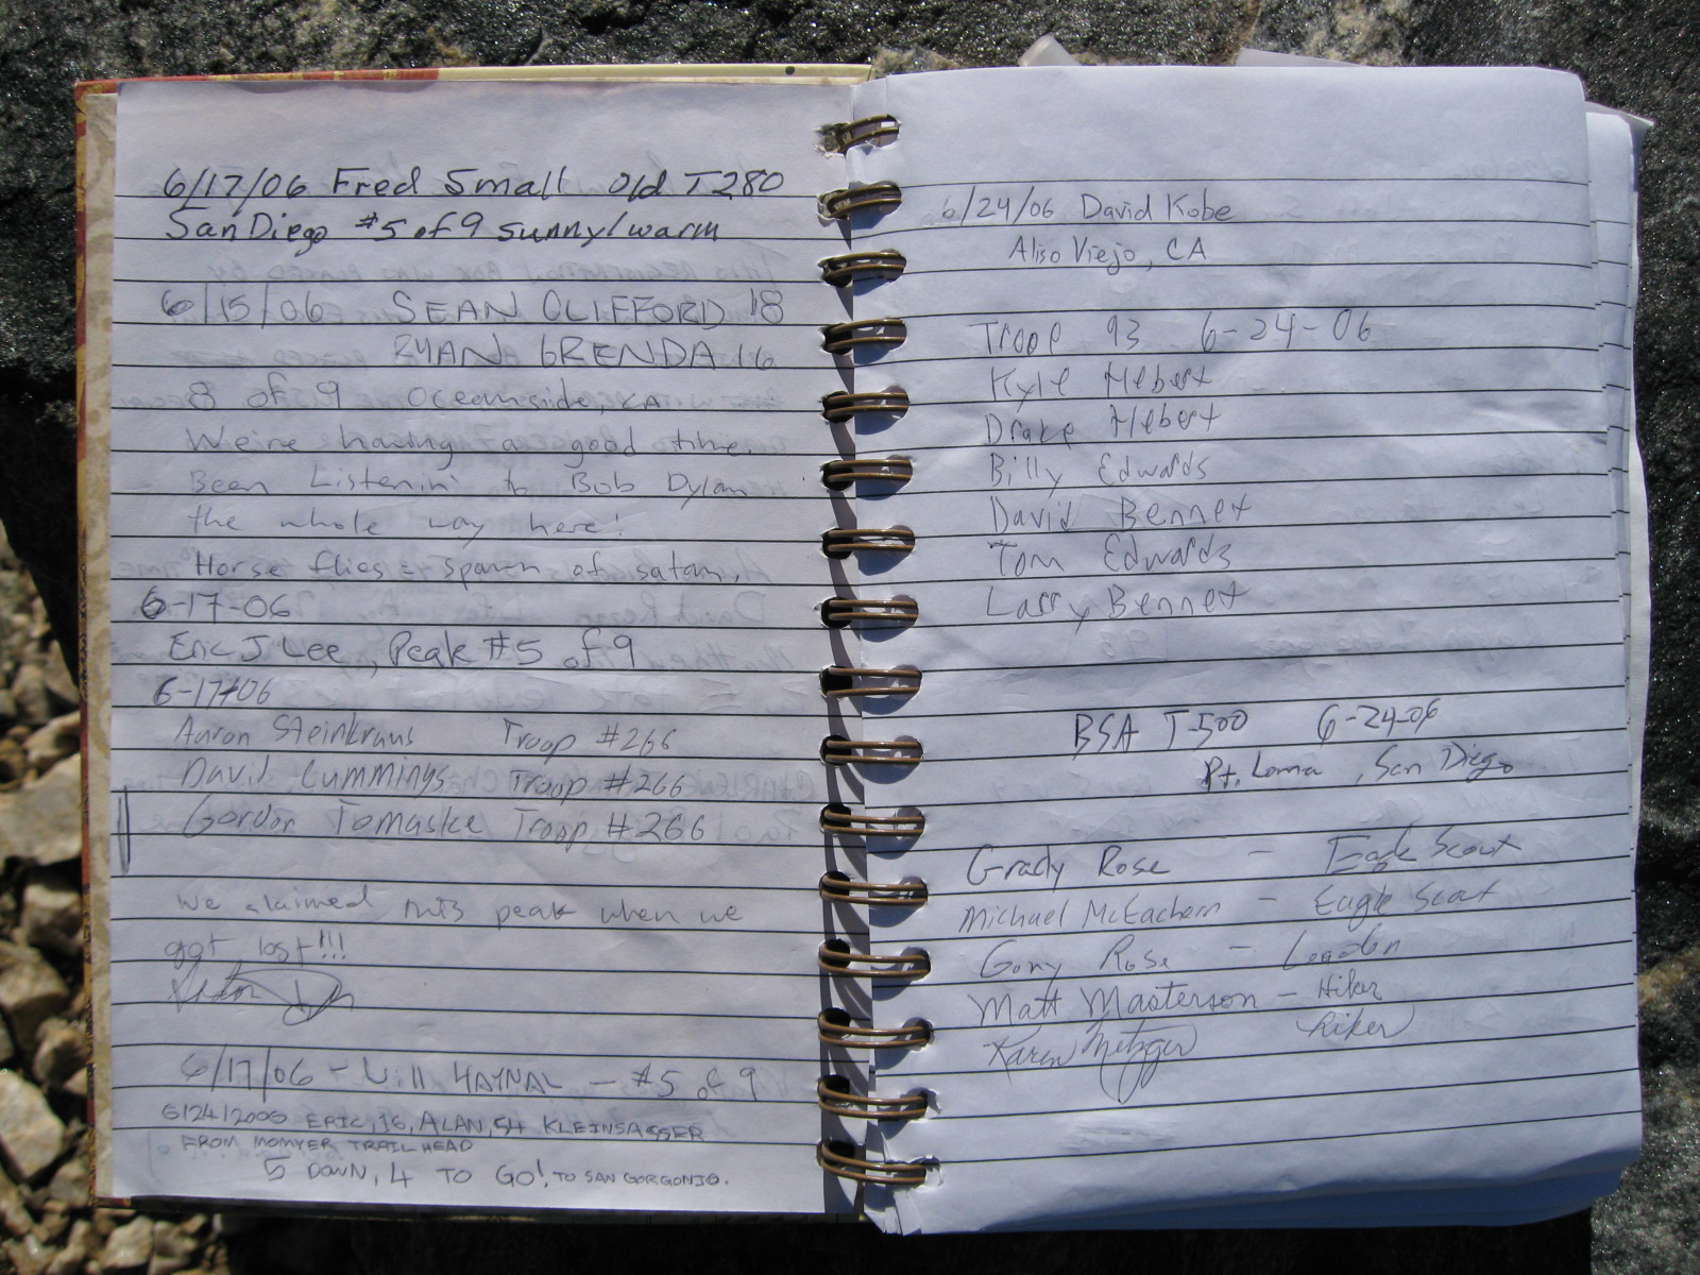 6/17/06 Fred Small old T280
San Diego #5 of 9 sunny/warm
6/15/06 SEAN CLIFFORD 18
RYAN GRENDA 16
8 of 9 Oceanside, CA
We're having a good time.
Been Listenin' to Bob Dylan
the whole way here!
Horse flies = spawn of satan.
6-17-06
Eric J Lee, Peak #5 of 9
6-17-06
Aaron Steinkraus Troop #266
David Cummings Troop #266
Gordon Tomaske Troop #266
We claimed this peak when we
got lost!!!
6/17/06 - Will HAYNAL - #5 of 9
6/24/2006 ERIC, 16, ALAN, 54 KLEINSASSER
FROM MOMYER TRAIL HEAD
5 DOWN, 4 TO GO! TO SAN GORGONIO.
6/24/06 David Kobe
Aliso Viejo, CA
Troop 93 6-24-06
Kyle Hebert
Drake Hebert
Billy Edwards
David Bennet
Tom Edwards
Larry Bennet
BSA T-500 6-24-06
Pt. Loma, San Diego
Grady Rose - Eagle Scout
Michael McEachern - Eagle Scout
Gary Rose -
Matt Masterson - Hiker
Karen Metzger hiker